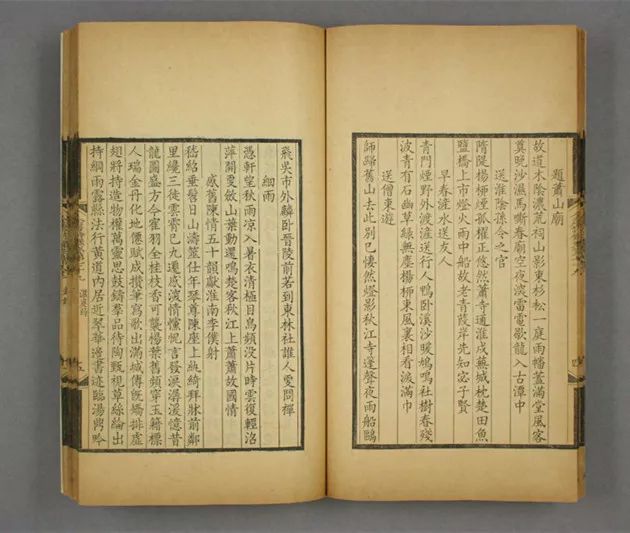 題蕭山廟
故道木陰濃荒祠山影東杉松一庭雨幡蓋滿堂風客
奠曉沙濕馬嘶春廟空夜淡雷電歇龍入古潭中
送淮陰孫令之官
隋隄楊柳煙孤櫂正悠然蕭寺通淮戍蕪城枕楚田魚
鹽橋上市燈火雨中船故老青葭岸先知宓子賢
早春滻水送友人
青門煙野外渡滻送行人鴨臥溪沙暖鳩鳴社樹春殘
波青有石幽草綠無塵楊柳東風裏相看淚滿巾
送僧東遊
師歸舊山去此別已悽然燈影秋江寺篷聲夜雨船鷗
飛吳市外麟臥晉陵前若到東林社誰人更問禪
細雨
憑軒望秋雨涼入暑衣清極目鳥頻沒片時雲復輕沼
萍開更斂山葉動還鳴楚客秋江上蕭蕭故國情
感舊陳情五十韻獻淮南李僕射
嵇紹垂髫日山濤筮仕年琴尊陳座上紈綺拜牀前鄰
里纔三徙雲霄已九遷感深情惝怳言發淚潺湲憶昔
龍圖盛方今鶴羽全桂枝香可襲楊葉舊頻穿玉籍標
人瑞金丹化地僊賦成攢筆寫歌出滿城傳旣矯排虛
翅將持造物權萬靈思鼓鑄羣品待陶甄視草絲綸出
持綱雨露懸法行黃道內居近翠華邊書迹臨湯鼎吟